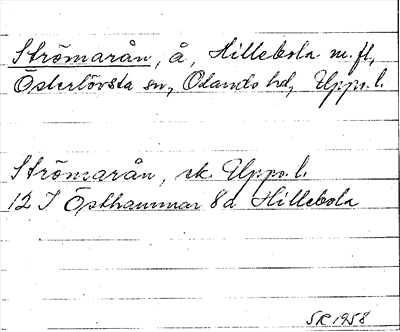 Strömarån, å, Hillebola m.fl.,
Österlövsta sn, Olands hd, Upps. l.
Strömarån, ek. Upps. l.
12 I Östhammar 8d Hillebola
SR 1958